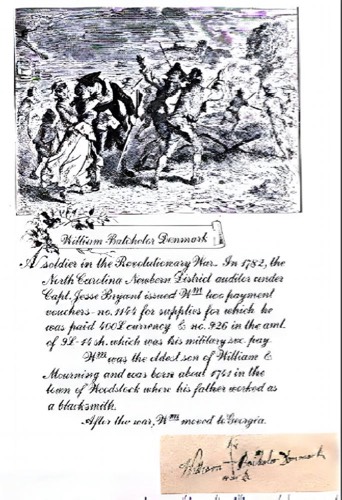 William Batchelor Denmark
A soldier in the Revolutionary War. In 1782, the
North Carolina Newbern District auditor under
Capt. Jesse Bryant issued Wm two payment
vouchers - no. 1144 for supplies for which he
was paid 400£ currency & no. 926 in the amt.
of 9£-14 sh. which was his military svc. pay.
Wm was the oldest son of William &
Mourning and was born about 1741 in the
town of Woodstock where his father worked as
a blacksmith.
After the war, Wm moved to Georgia.
his
William Batchelor Denmark
mark